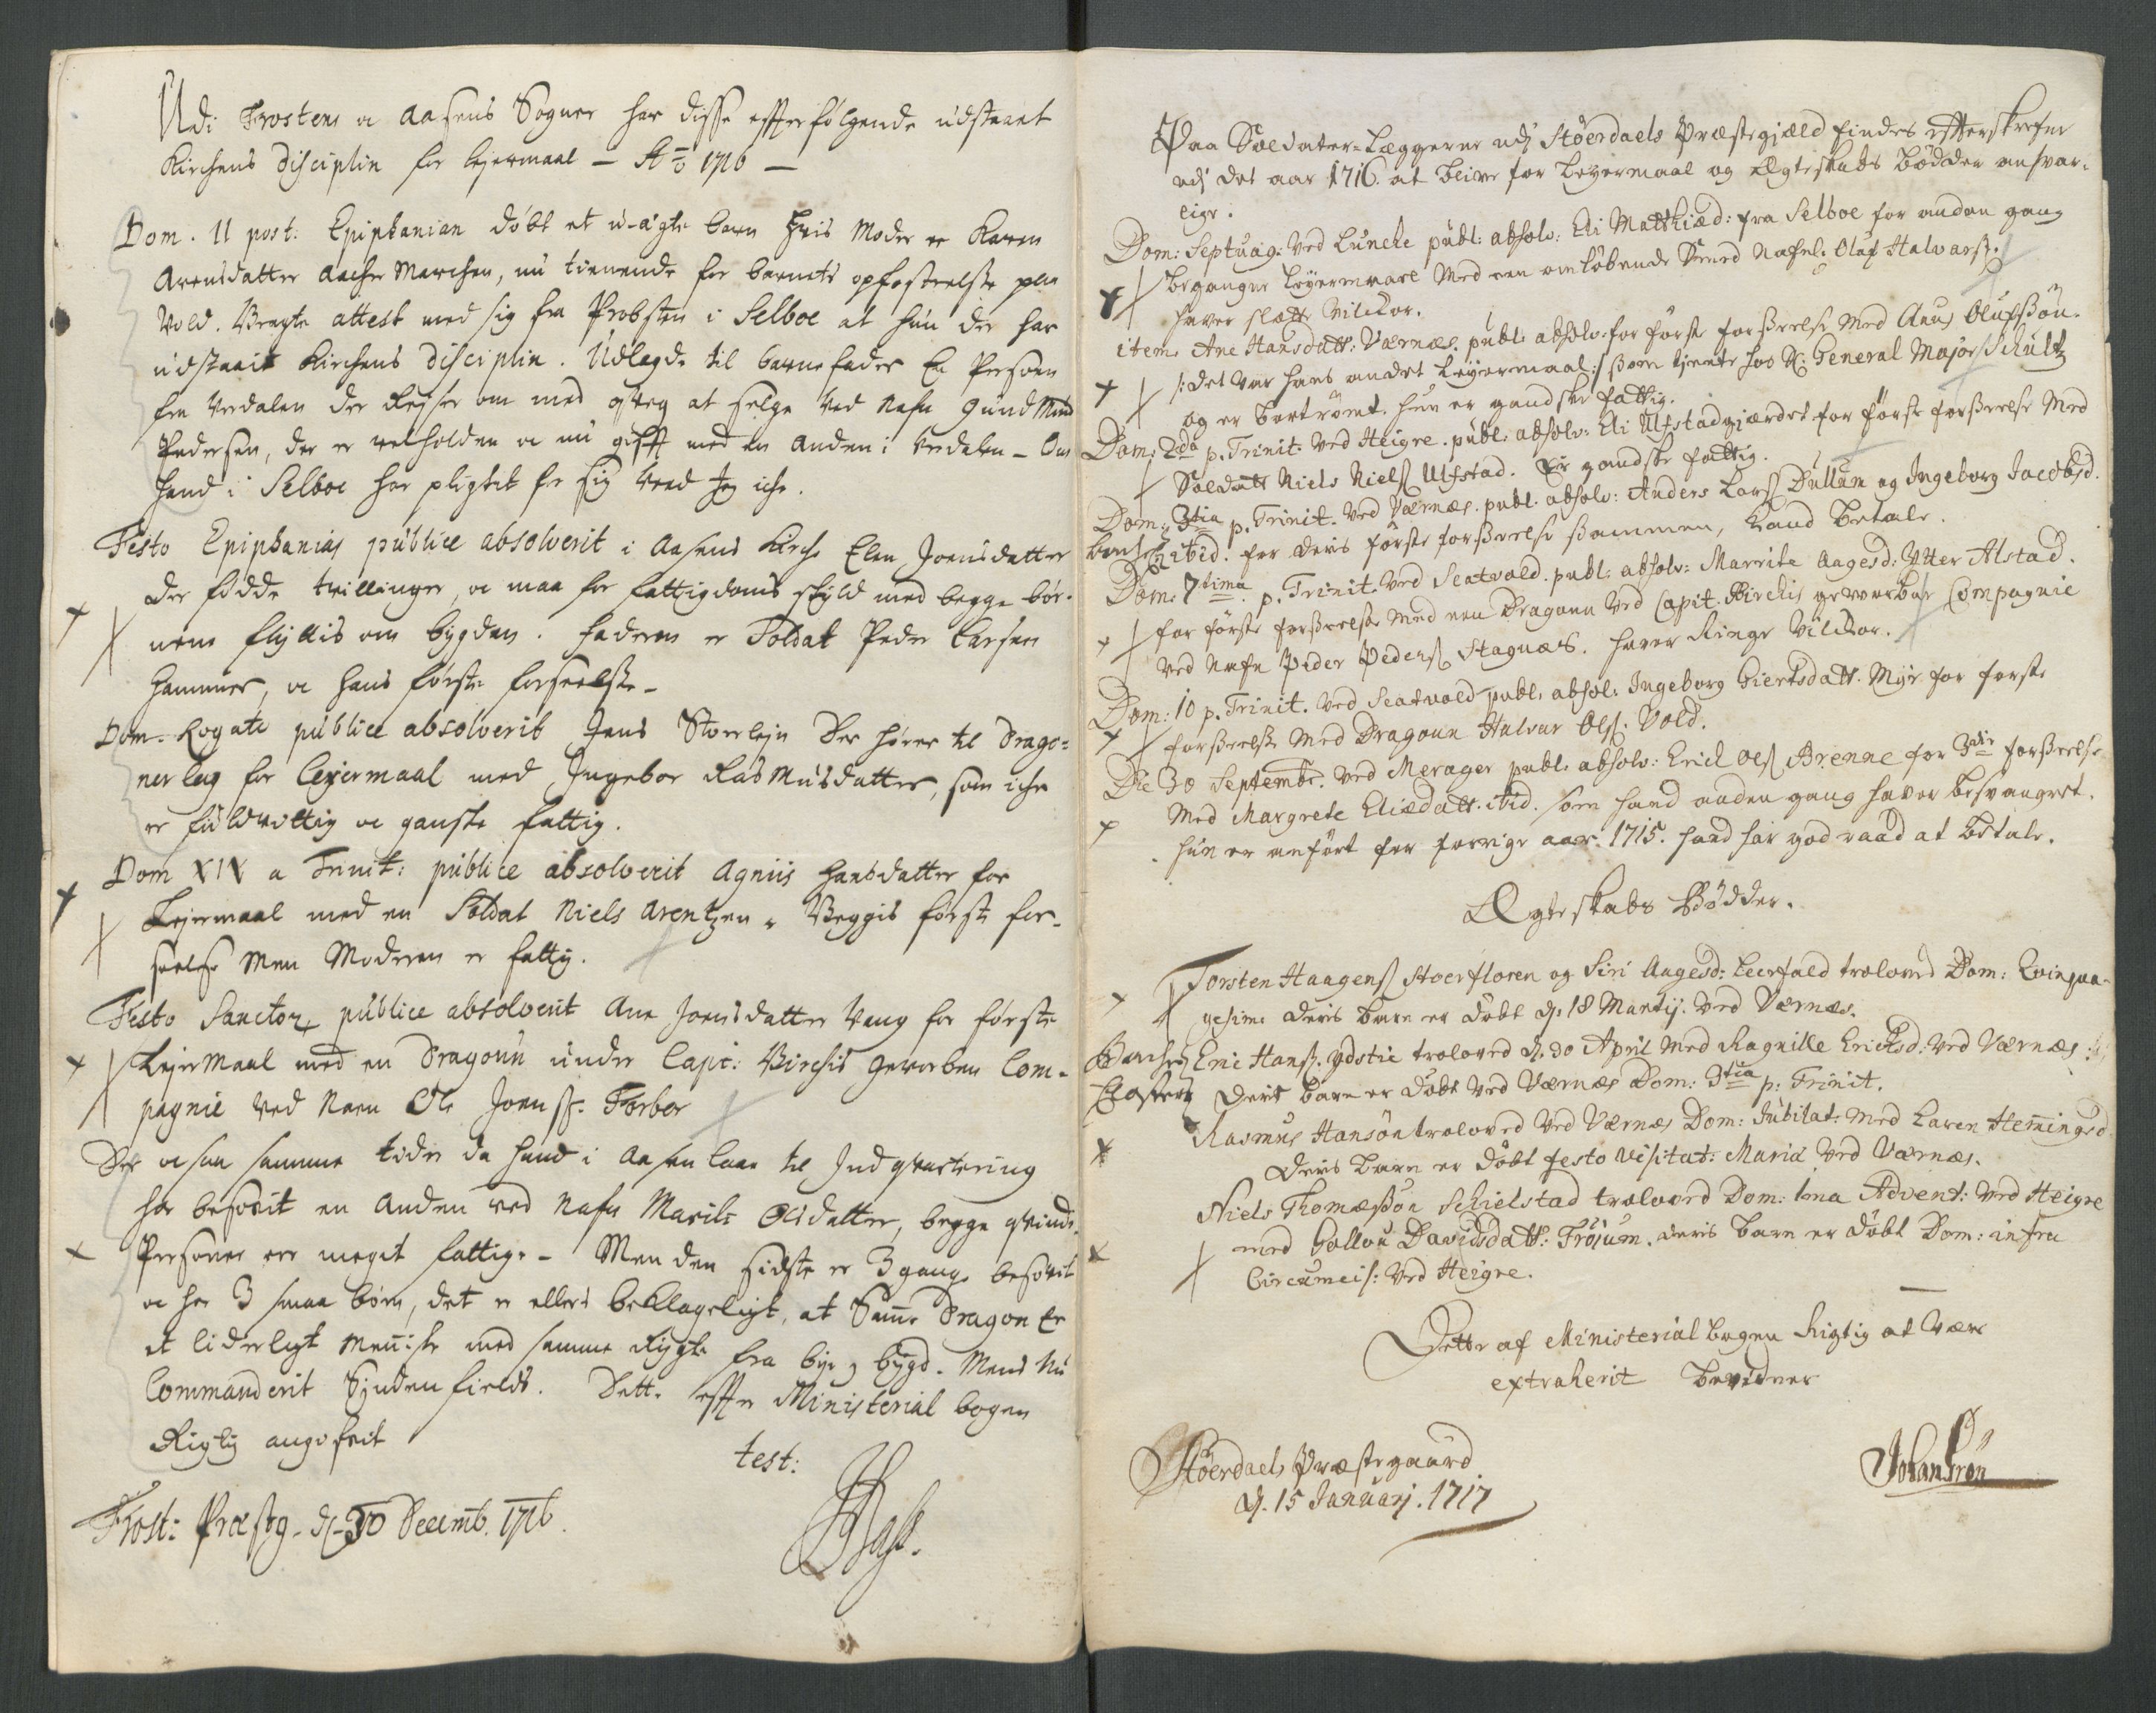 Udi Frostens oc Aasens Sogner har disse effterfølgende udstaaet
Kirchens disciplin for lejermaal — A&#772;o 1716 —
Dom. II post. Epiphanian døbt et u-ægte barn hvis Moder er Karen
Arensdatter Aacher Marchen, nu tienende for barnets opfostrelsse paa
Vold. Bragte attest med sig fra Probsten i Selboe at hun der har
udstaait Kirchens disciplin. Udlagde til barnefader En Persoen
fra Verdalen der Rejser om med qveg at selge ved nafn Gundmund
Pedersen, der er velholden oc nu gifft med en anden i Verdalen - Om
hand i Selboe har pligtet for sig veed Jeg iche.
Festo Epiphanias publice absolverit i Aasens Kirche Elen Joensdatter
der fødde tvillinger, oc maa for fattigdoms skyld med begge bør-
nene flyttis om bygden. Faderen er Soldat Peder Larsen
Hammer, oc hans første forseelsse -
Dom. Rogate publice absolverit Jens Storlejn der hører til Drago-
nerleg for Lejermaal med Ingebor Rasmusdatter, som iche
er fuldvittig oc ganske fattig.
Dom XIX a Trinit: publice absolverit Agniis Hansdatter for
Lejermaal med en Soldat Niels Arentzen. Beggis første for-
seelse Men Moderen er fattig.
Festo Sanctor. publice absolverit Ane Joensdatter Vang for første
Lejermaal med en Dragoun under Capit: Birchis Gevorben Com-
pagnie ved Navn Ole Joenss. Forbor
Der ocsaa samme tider da hand i Aasen laae til Indqvartering
har besovit en anden ved nafn Marite Olsdatter, begge qvinds
Personer ere meget fattige - Men den sidste er 3 gange besovit
oc har 3 smaa børn, det er ellers beklageligt, at Samme Dragon Er
et liderligt Menniske med samme Rygte fra bye og bygd. Mens Nu
Commanderit Syndenfields. Dette effter Ministerial bogen
Rigtig angifvit
test:
Frost: Præstg. d. 30 Decemb. 1716.
Paa Soldater-Læggerne udj Støerdaels Præstegield findes effterskrefne
udj det aar 1716. at blive for Leyermaal og Ægteskabs bødder ansvar-
lige.
Dom: Septuag: ved Luncke publ: absolv: Eli Matthiæd: fra Selboe for anden gang
begangne Leyermaal Med een omløbende Svend Nafnl: Oluf Halvarss.
haver slætte Vilckor.
item Ane Hansdatt: Værnæs. publ: absolv. for første forseelse Med Anus Olufssøn
/: det var hans andet Leyermaal :/ som tiente hos H: General Major Schultz
og er bortrømt. hun er gandske fattig.
Dom: 2da p. Trinit: ved Heigre. publ: absolv: Eli Ulfstadgiærdet for første forseelse Med
Soldatt Niels Nielss Ulfstad. Er gandske fattig.
Dom: 3tia p. Trinit. ved Værnæs. publ. absolv: Anders Larss Dullum og Ingeborg Jacobsd.
ibid. for deris første forseelse sammen, kand betale.
Dom: 7tima p. Trinit. ved Scatvold. publ: absolv: Marrite Aagesd: Ytter Alstad.
for første forseelse Med een Dragoun ved Capit: Birchis gevorbne Compagnie
ved Nafn Peder Pederss Stagnæs. haver Ringe Vilckor.
Dom: 10 p. Trinit. ved Scatvold publ: absol: Ingeborg Giertsdatt. Myr for første
forseelse Med Dragoun Halvar Olss: Vold.
Die 30 Septembr. ved Merager publ: absolv: Erich Olss Brenne for 3die forseelse
Med Margrete Eliædatt. ibid. som hand anden gang haver besvangret.
hun er anført for forrige aar. 1715. hand har god raad at betale.
Ægteskabs Bødder.
Torsten Haagenss Stoerfloren og Siri Aagesd: Leerfald troloved Dom: Qvinqva-
gesim: deris barn er døbt d. 18 Martij. ved Værnæs.
Eric Hanss. Ydstie troloved d. 30 April Med Ragnille Erichsd: ved Værnæs
deris barn er døbt ved Værnæs Dom: 3tia p: Trinit.
Rasmus Hansøn troloved ved Værnæs Dom: Jubilat: Med Karen Hemingsd
deris barn er døbt festo visitat: Mariæ ved Værnæs.
Niels Thomæssøn Schielstad troloved Dom: 1ma Advent: ved Heigre
med Gollou Davidsdatt: Frøium. deris barn er døbt Dom: infra
Circumcis: ved Heigre.
Dette af Ministerial bogen Rigtig at være
extraherit bevidner
Støerdaels Præstegaard
d. 15 Januarj. 1717
Johan Frøn